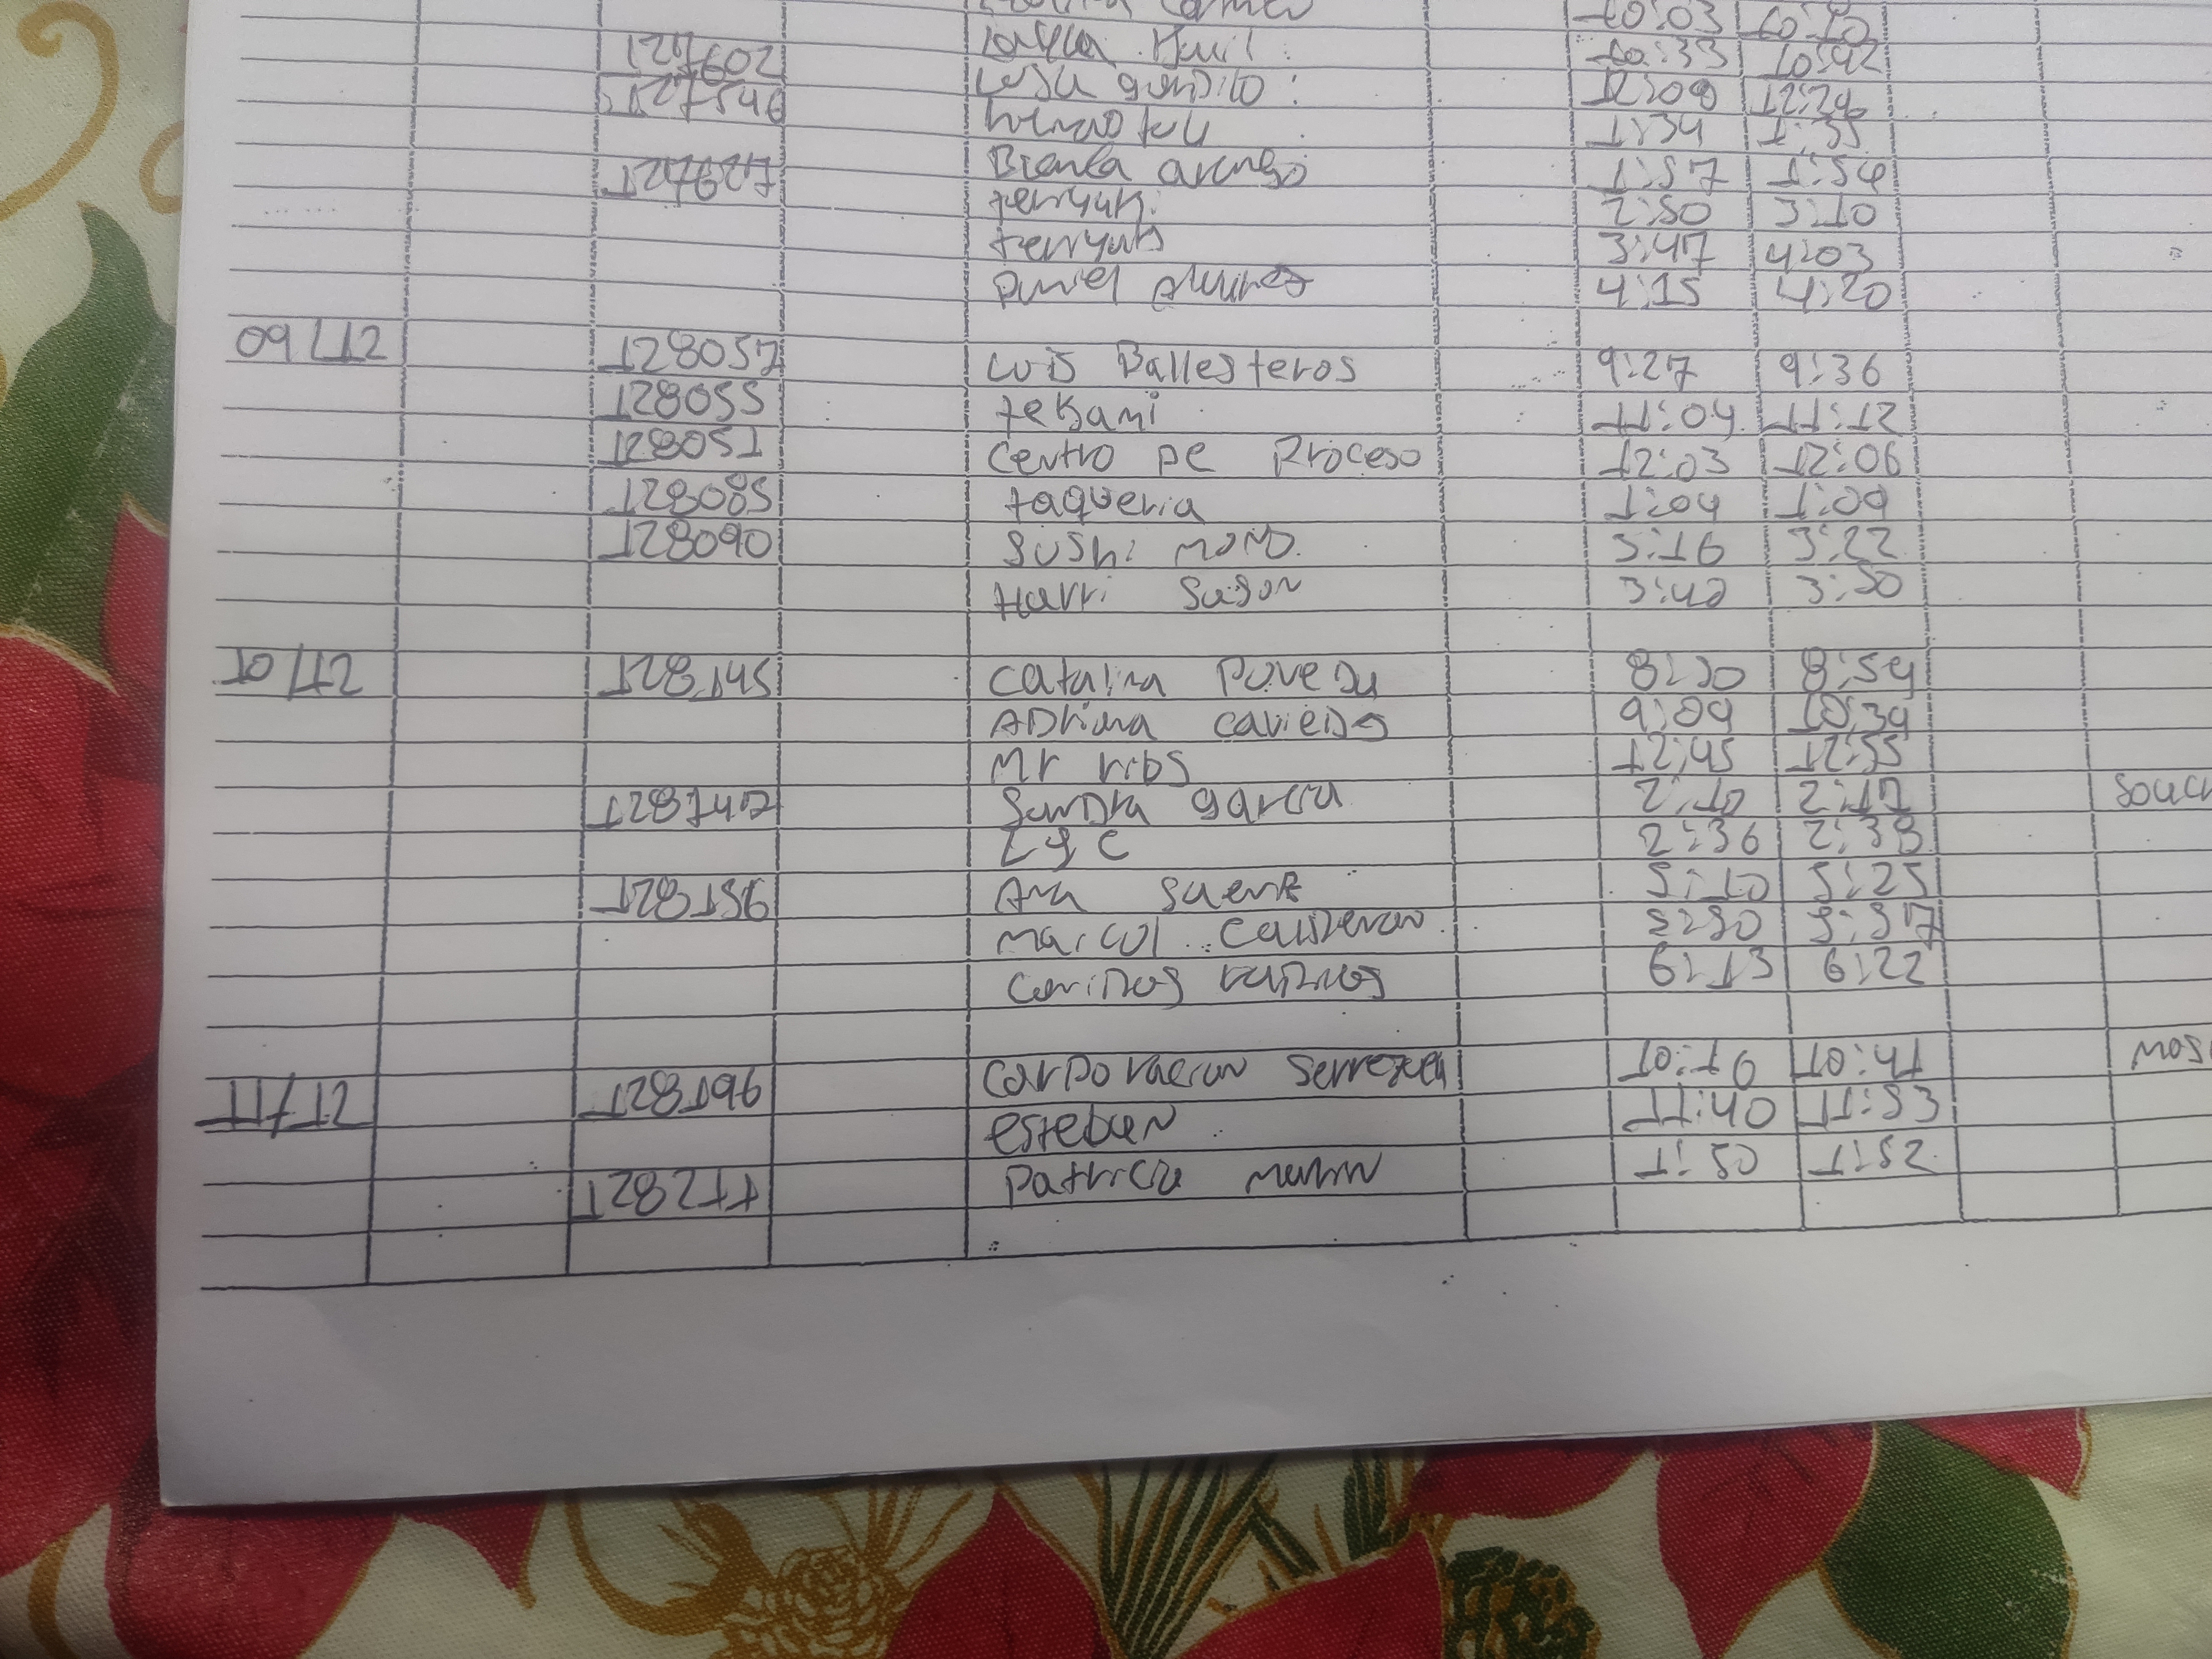 10:03 10:10
127602 10:33 10:42
127546 12:09
1:34 1:35
127627 Bianca arango 1:57
teriyaki 2:50 3:10
teriyaki 3:47 4:03
Daniel Alvarez 4:15 4:20
09/12 128057 Luis Ballesteros 9:27 9:36
128055 tekami 11:04 11:12
128051 Centro De Proceso 12:03 12:06
128085 taqueria 1:04 1:09
128090 Sushi MOMO 3:16 3:22
Harri Sason 3:42 3:50
10/12 128145 Catalina Poveda 8:50 8:54
ADriana caviedes 9:09 10:39
Mr ribs 12:45 12:55
128147 Sandra garcia 2:10 2:17
LyC 2:36 2:38
128156 Ana Saenz 5:10 5:25
Maicol Calderon 5:30 5:37
6:13 6:22
11/12 128196 Corporacion Serrezuela 10:16 10:41
esteban 11:40 11:53
128211 Patricia Marin 1:50 1:52